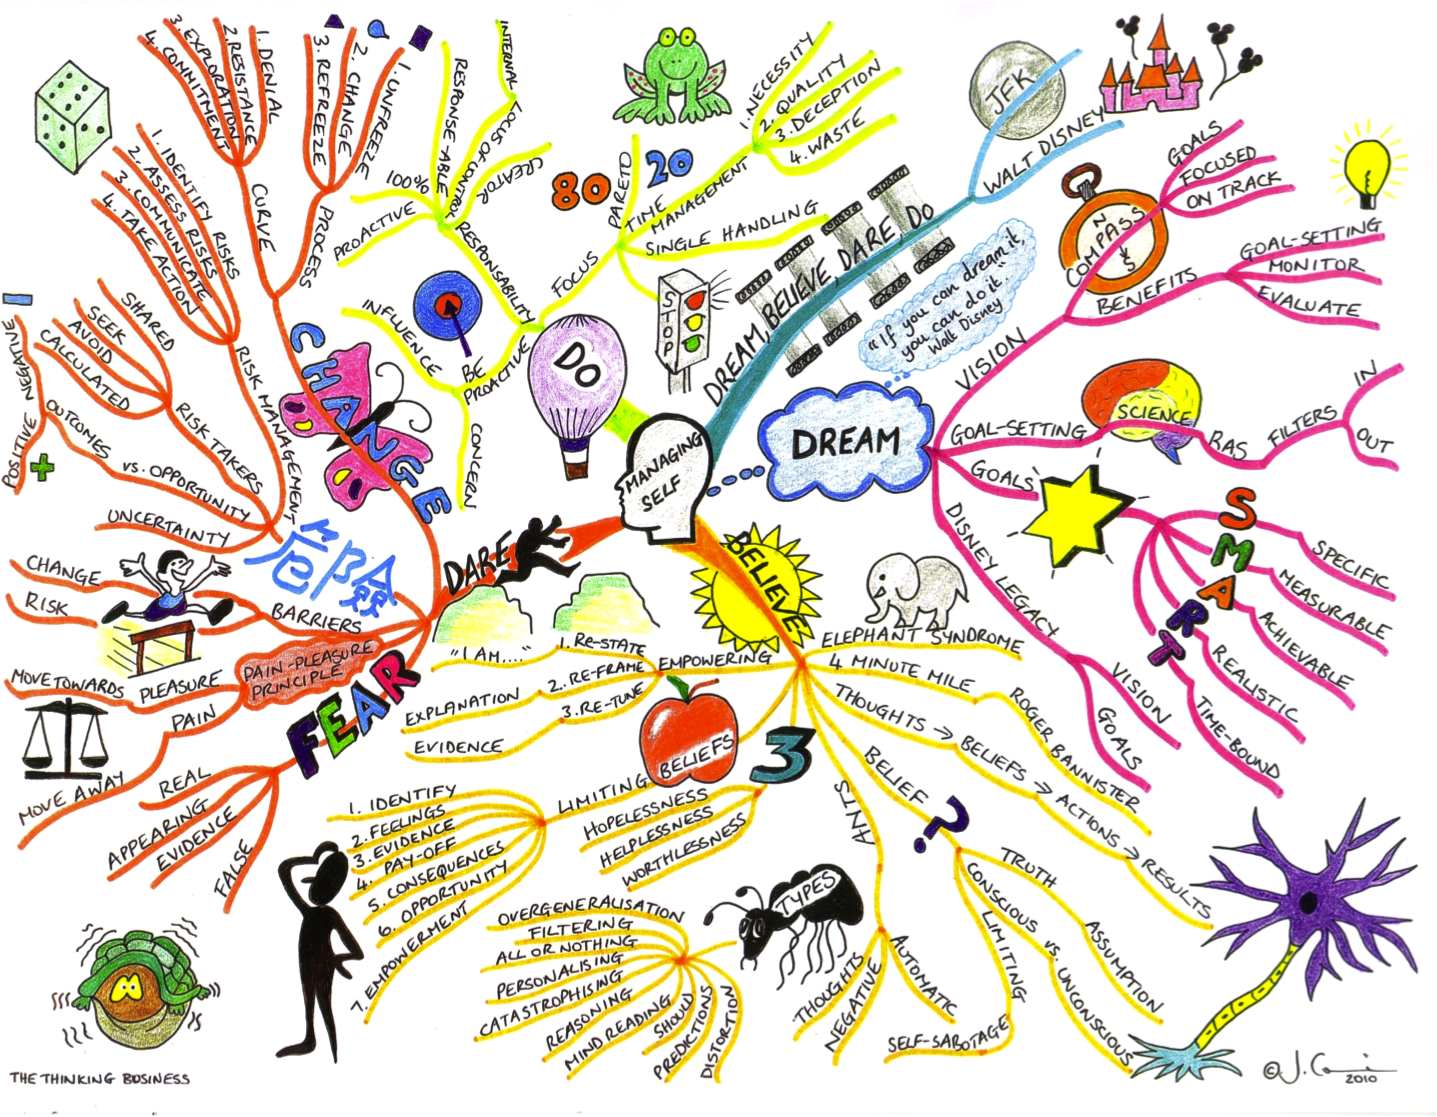 MANAGING
SELF
DREAM, BELIEVE, DARE, DO
JFK
WALT DISNEY
"If you can dream it,
you can do it."
Walt Disney
DREAM
VISION
COMPASS
N
S
GOALS
FOCUSED
ON TRACK
BENEFITS
GOAL-SETTING
MONITOR
EVALUATE
GOAL-SETTING
SCIENCE
RAS
FILTERS
IN
OUT
GOALS
SMART
SPECIFIC
MEASURABLE
ACHIEVABLE
REALISTIC
TIME-BOUND
DISNEY LEGACY
VISION
GOALS
BELIEVE
ELEPHANT SYNDROME
4 MINUTE MILE
ROGER BANNISTER
THOUGHTS → BELIEFS → ACTIONS → RESULTS
BELIEF ?
TRUTH
ASSUMPTION
CONSCIOUS vs. UNCONSCIOUS
LIMITING
SELF-SABOTAGE
ANTS
AUTOMATIC
NEGATIVE
THOUGHTS
TYPES
OVERGENERALISATION
FILTERING
ALL OR NOTHING
PERSONALISING
CATASTROPHISING
REASONING
MIND READING
SHOULD
PREDICTIONS
DISTORTION
3
HOPELESSNESS
HELPLESSNESS
WORTHLESSNESS
BELIEFS
EMPOWERING
1. RE-STATE
"I AM...."
2. RE-FRAME
EXPLANATION
3. RE-TUNE
EVIDENCE
LIMITING
1. IDENTIFY
2. FEELINGS
3. EVIDENCE
4. PAY-OFF
5. CONSEQUENCES
6. OPPORTUNITY
7. EMPOWERMENT
DARE
FEAR
FALSE
EVIDENCE
APPEARING
REAL
PAIN-PLEASURE
PRINCIPLE
PLEASURE
MOVE TOWARDS
PAIN
MOVE AWAY
BARRIERS
CHANGE
RISK
危險
RISK MANAGEMENT
UNCERTAINTY
OUTCOMES vs. OPPORTUNITY
POSITIVE
NEGATIVE
RISK TAKERS
CALCULATED
AVOID
SEEK
SHARED
1. IDENTIFY RISKS
2. ASSESS RISKS
3. COMMUNICATE
4. TAKE ACTION
CHANGE
CURVE
1. DENIAL
2. RESISTANCE
3. EXPLORATION
4. COMMITMENT
PROCESS
1. UNFREEZE
2. CHANGE
3. REFREEZE
DO
BE
PROACTIVE
INFLUENCE
CONCERN
RESPONSIBILITY
PROACTIVE
100%
RESPONSE-ABLE
INTERNAL LOCUS OF CONTROL
CREATOR
FOCUS
PARETO
80
20
TIME
MANAGEMENT
1. NECESSITY
2. QUALITY
3. DECEPTION
4. WASTE
SINGLE HANDLING
STOP
THE THINKING BUSINESS
2010